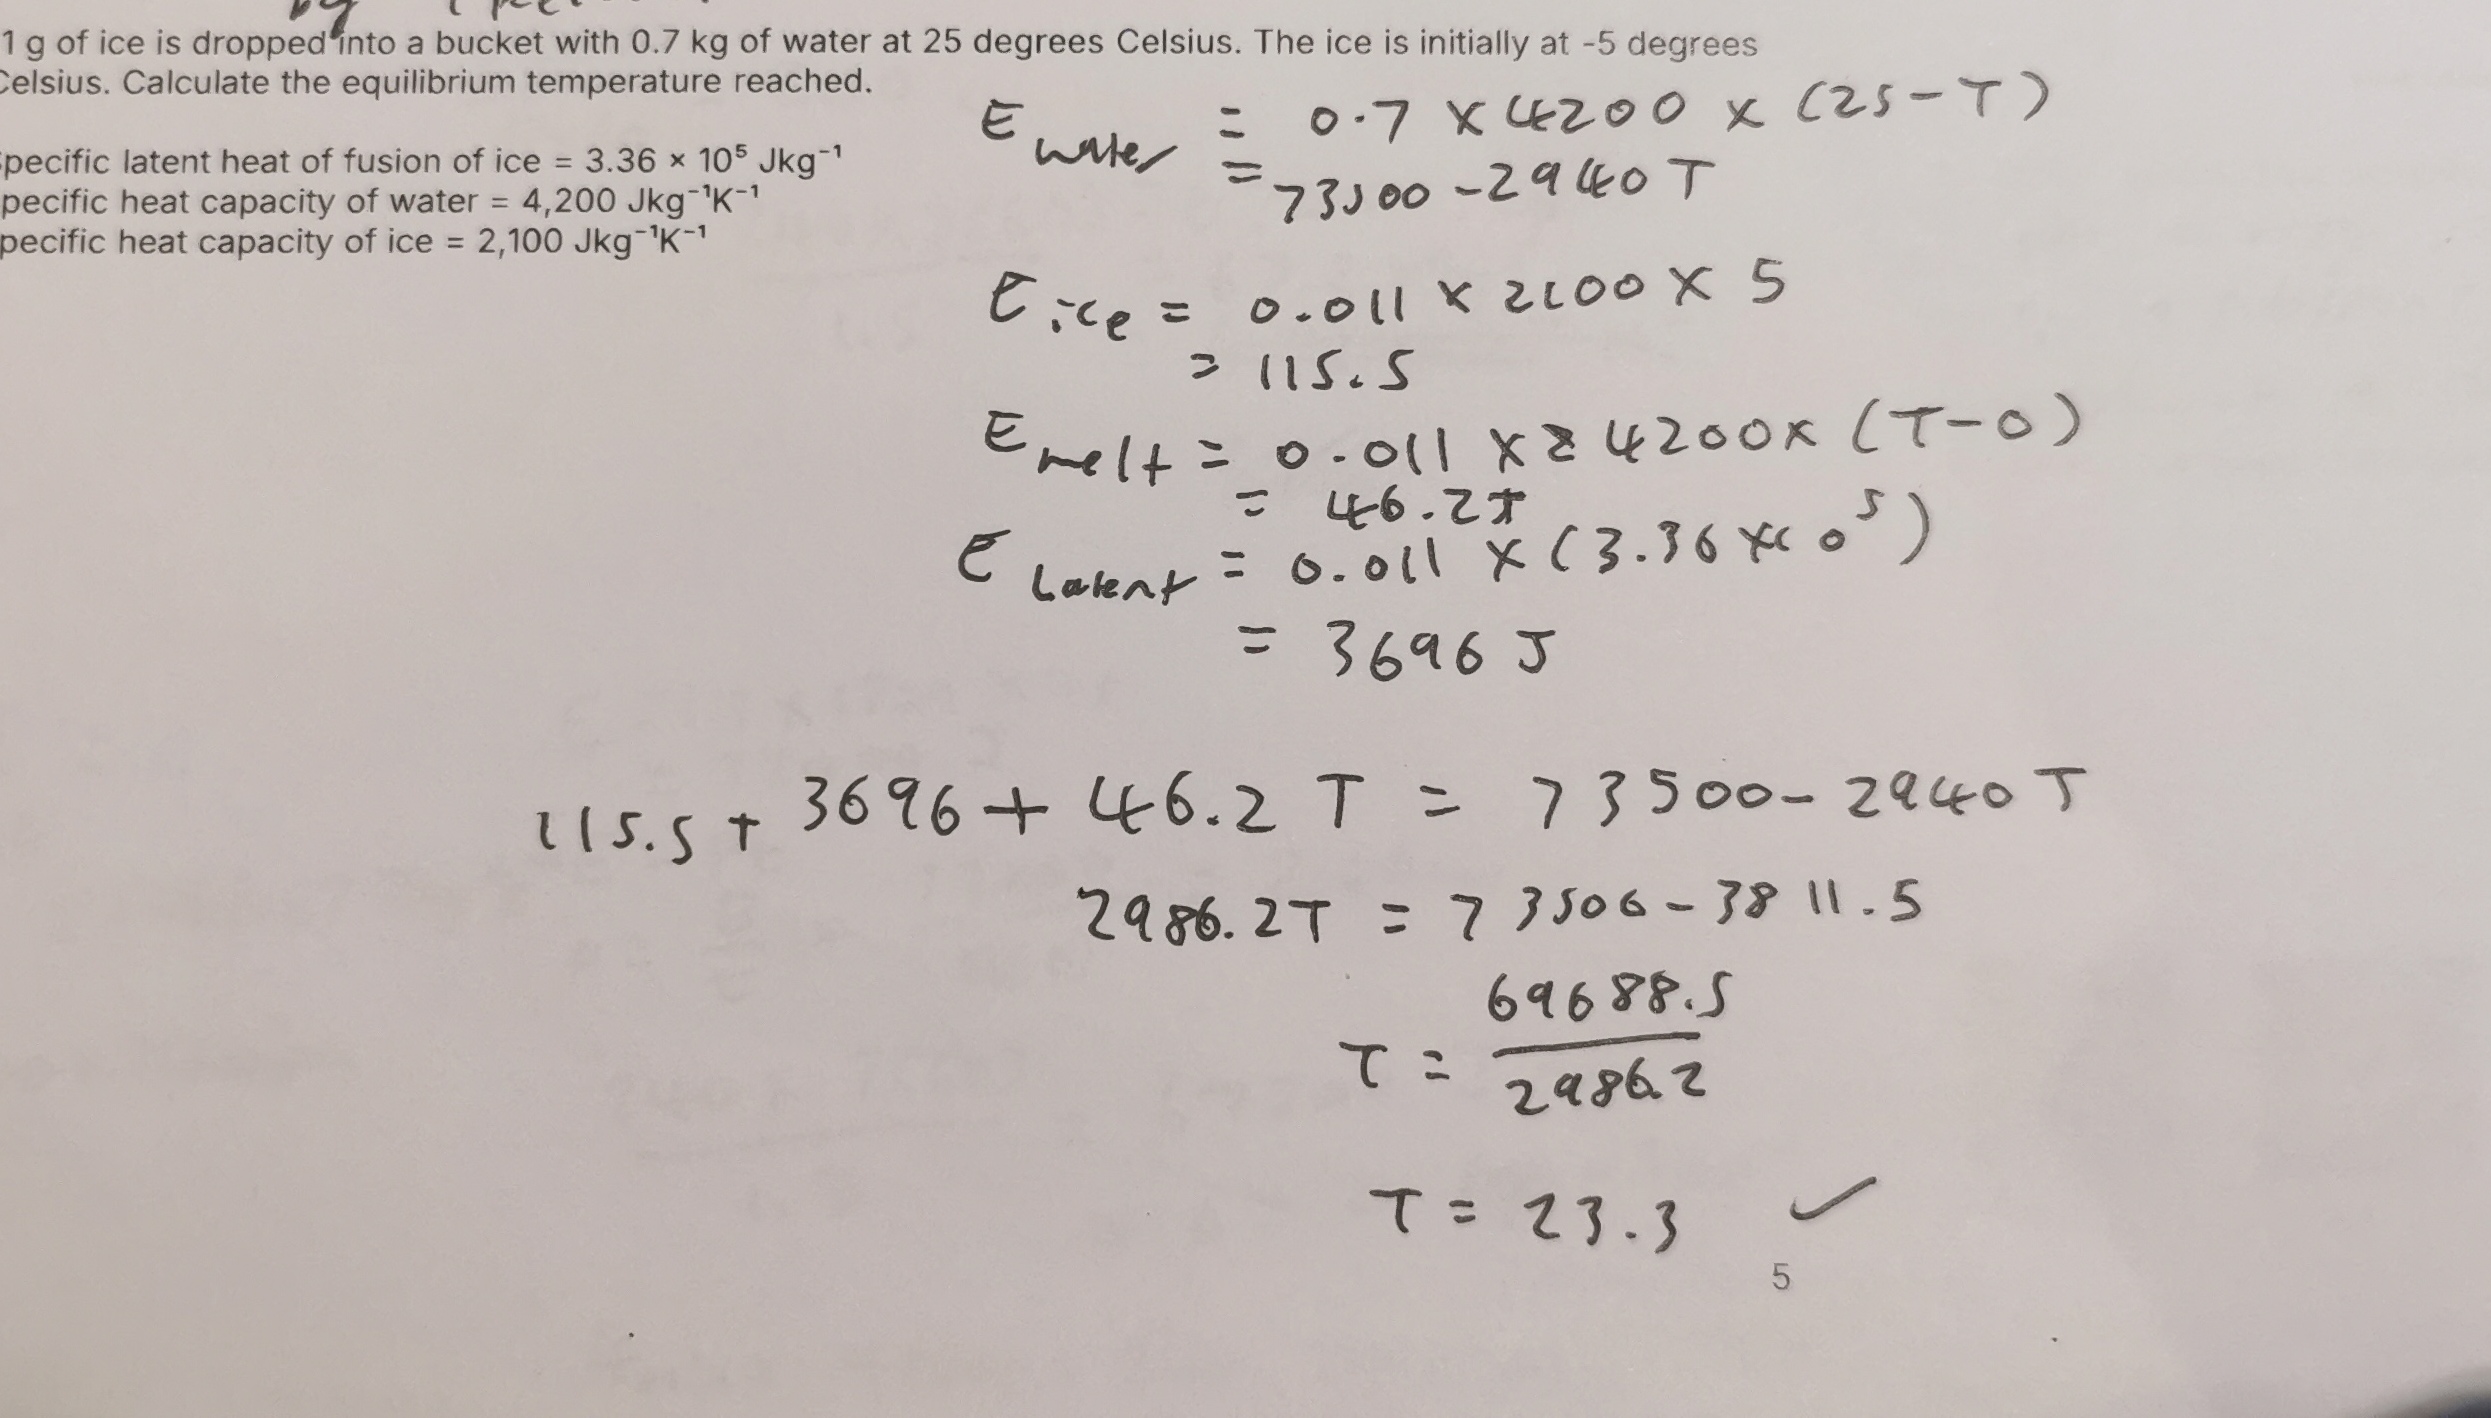 1 g of ice is dropped into a bucket with 0.7 kg of water at 25 degrees Celsius. The ice is initially at -5 degrees
Celsius. Calculate the equilibrium temperature reached.
pecific latent heat of fusion of ice = 3.36 × 10⁵ Jkg⁻¹
pecific heat capacity of water = 4,200 Jkg⁻¹K⁻¹
pecific heat capacity of ice = 2,100 Jkg⁻¹K⁻¹
E water = 0.7 × 4200 × (25 - T)
= 73500 - 2940 T
E ice = 0.011 × 2100 × 5
= 115.5
E melt = 0.011 × 4200 × (T - 0)
= 46.2T
E Latent = 0.011 × (3.36 × 10⁵)
= 3696 J
115.5 + 3696 + 46.2 T = 73500 - 2940 T
2986.2T = 73500 - 3811.5
T = 69688.5 / 2986.2
T = 23.3 ✓
5